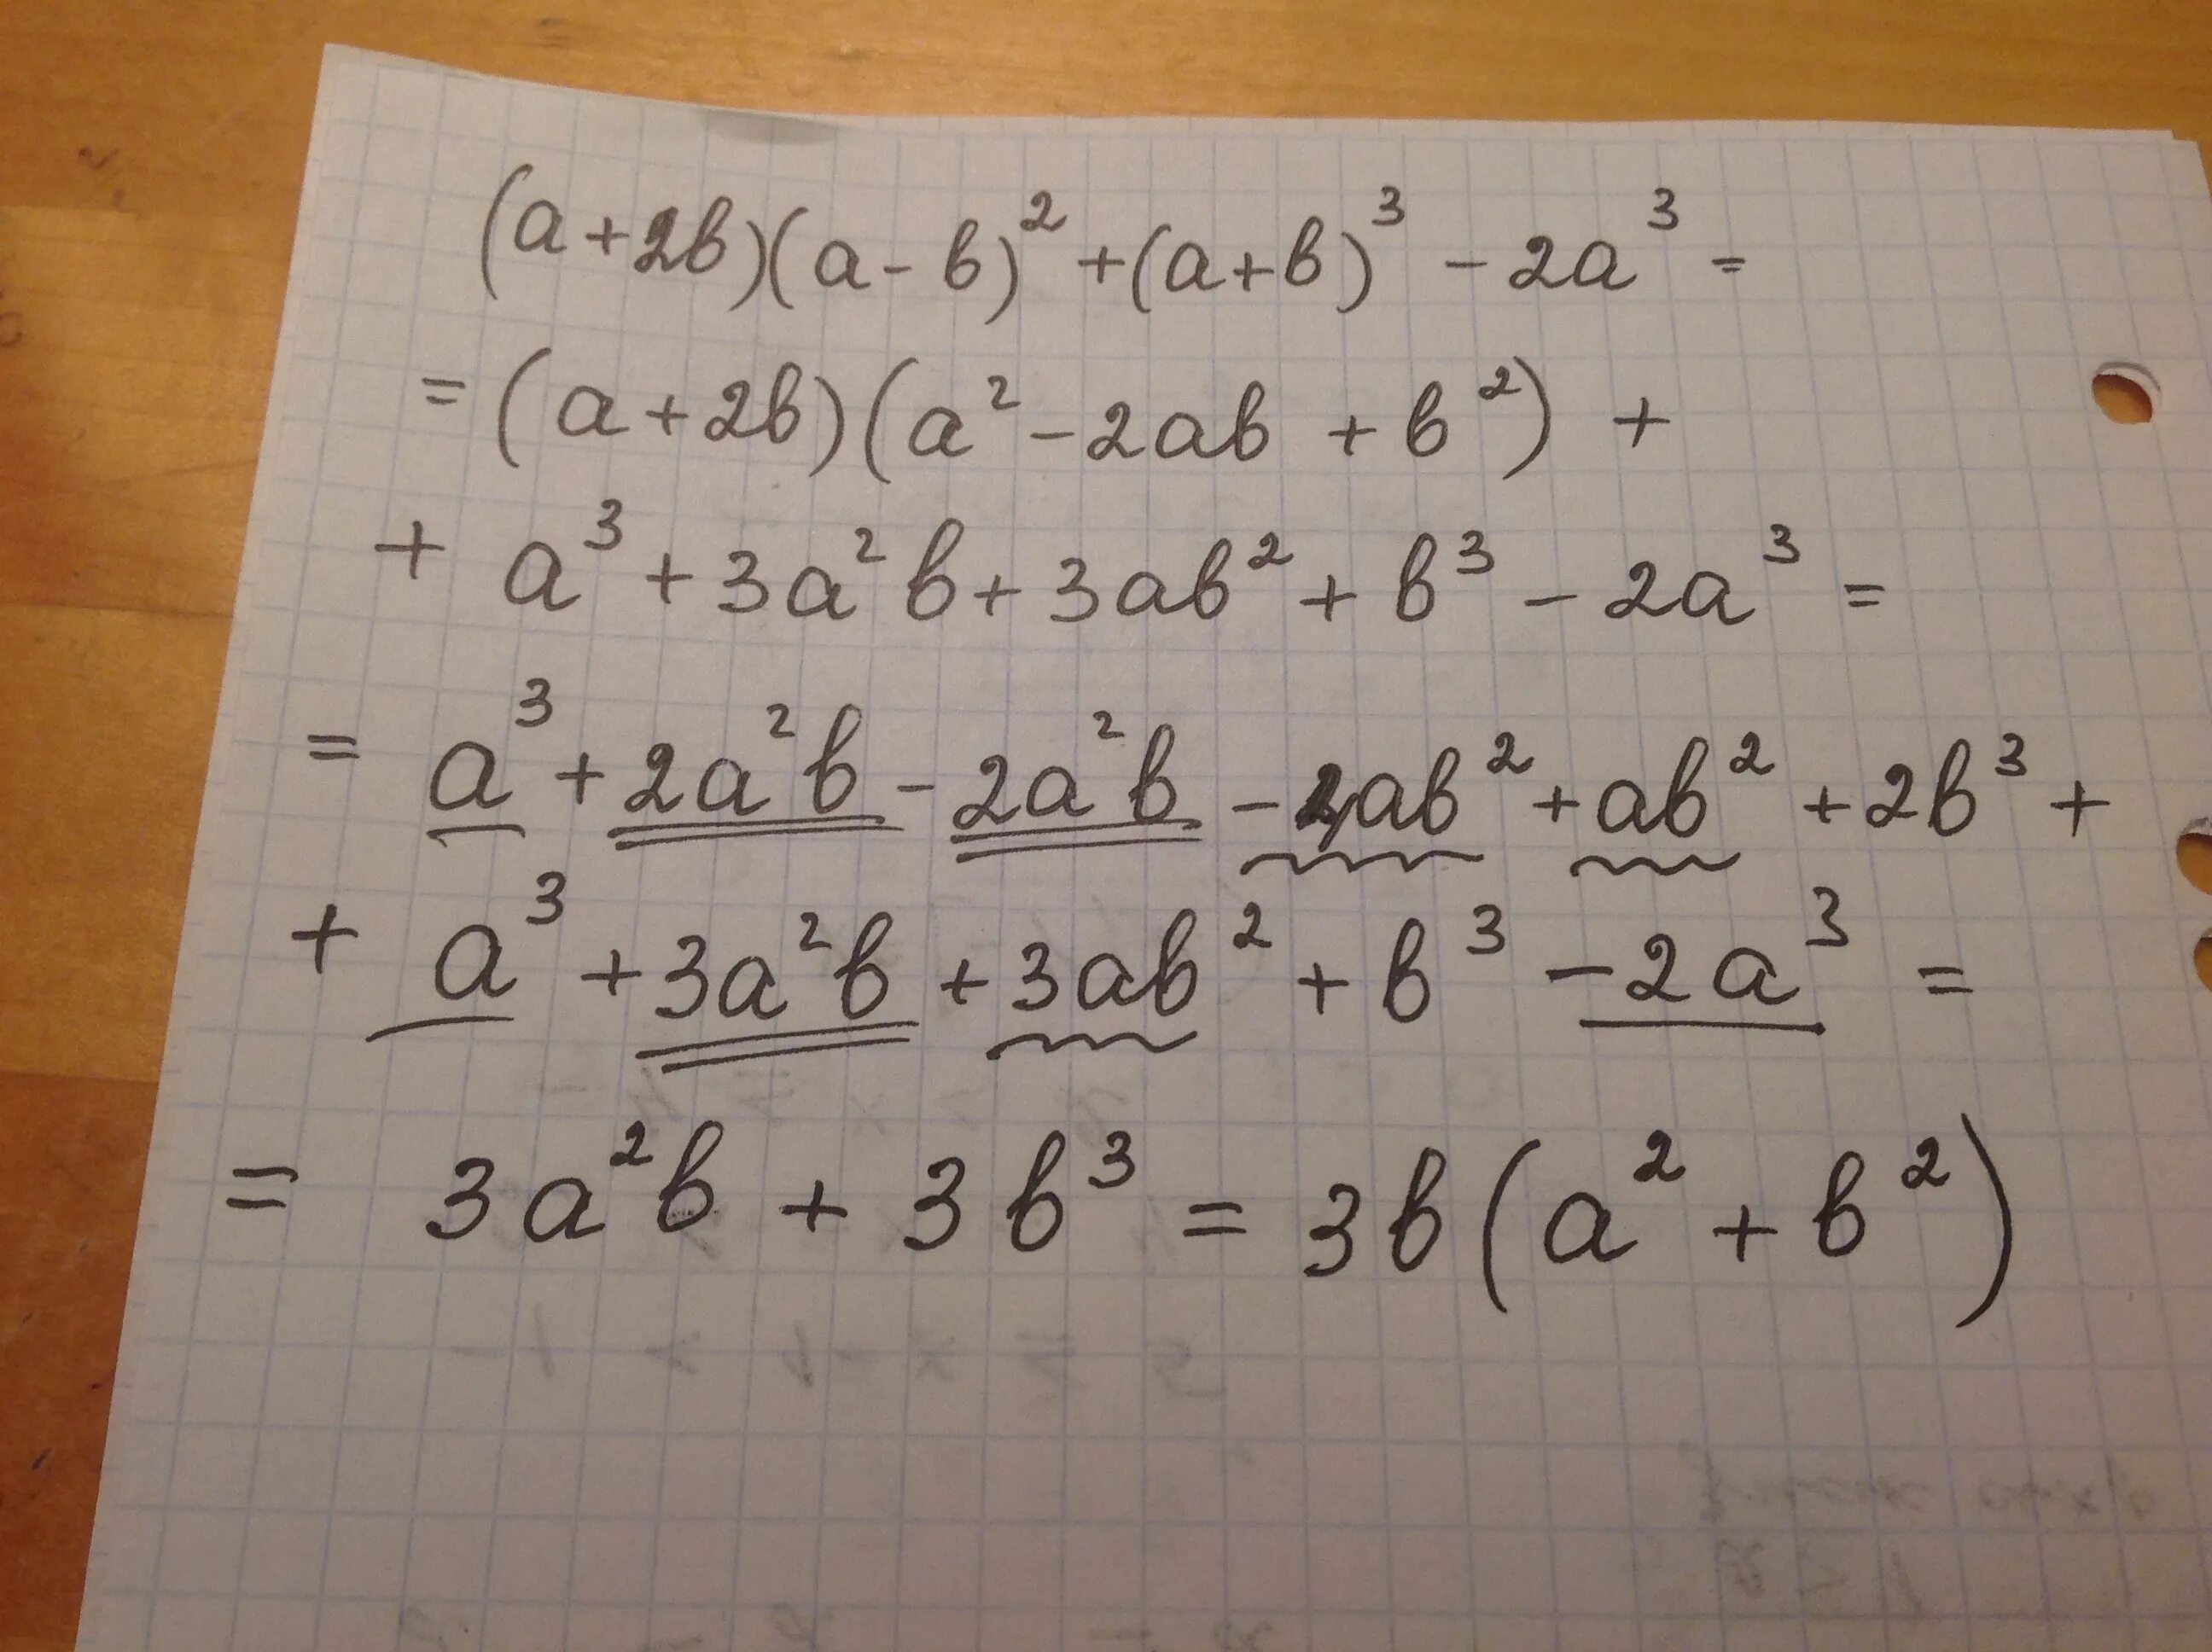 (a+2b)(a-b)²+(a+b)³-2a³=
=(a+2b)(a²-2ab+b²)+
+a³+3a²b+3ab²+b³-2a³=
=a³+2a²b-2a²b-4ab²+ab²+2b³+
+a³+3a²b+3ab²+b³-2a³=
=3a²b+3b³=3b(a²+b²)